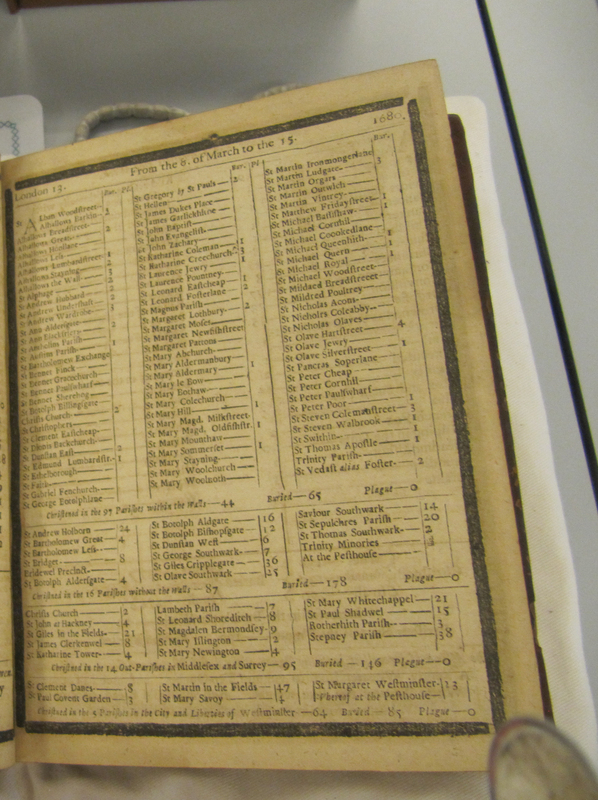 London 13. From the 8. of March to the 15. 1680.
Bur. Pl.
St Alban Woodstreet
Alhallows Barkin 2
Alhallows Breadstreet
Alhallows Great 2
Alhallows Honilane
Alhallows Less
Alhallows Lumbardstreet 1
Alhallows Staining 3
Alhallows the Wall
St Alphage
St Andrew Hubbard
St Andrew Undershaft
St Andrew Wardrobe
St Ann Aldersgate
St Ann Blackfryers
St Antholins Parish
St Austins Parish
St Bartholomew Exchange
St Bennet Finck
St Bennet Gracechurch
St Bennet Paulswharf
St Bennet Sherehog
St Botolph Billingsgate
Christs Church 2
St Christophers
St Clement Eastcheap
St Dionis Backchurch
St Dunstan East 2
St Edmund Lumbardstr. 1
St Ethelborough
St Faith
St Gabriel Fenchurch
St George Botolphlane
Bur. Pl.
St Gregory by St Pauls 2
St Hellen
St James Dukes Place
St James Garlickhithe
St John Baptist
St John Evangelist
St John Zachary
St Katharine Coleman 1
St Katharine Creechurch 3
St Laurence Jewry 1
St Laurence Pountney 1
St Leonard Eastcheap 2
St Leonard Fosterlane 2
St Magnus Parish
St Margaret Lothbury
St Margaret Moses
St Margaret Newfishstreet
St Margaret Pattons
St Mary Abchurch
St Mary Aldermanbury
St Mary Aldermary 1
St Mary le Bow
St Mary Bothaw
St Mary Colechurch
St Mary Hill 1
St Mary Magd. Milkstreet
St Mary Magd. Oldfishstr. 1
St Mary Mounthaw
St Mary Sommerset 1
St Mary Stayning
St Mary Woolchurch
St Mary Woolnoth
Bur.
St Martin Ironmongerlane
St Martin Ludgate 3
St Martin Orgars
St Martin Outwich
St Martin Vintrey 1
St Matthew Fridaystreet 1
St Michael Bassishaw
St Michael Cornhil
St Michael Crookedlane 1
St Michael Queenhith 1
St Michael Quern
St Michael Royal
St Michael Woodstreet
St Mildred Breadstreet
St Mildred Poultrey
St Nicholas Acons
St Nicholas Coleabby
St Nicholas Olaves
St Olave Hartstreet 4
St Olave Jewry
St Olave Silverstreet 1
St Pancras Soperlane
St Peter Cheap
St Peter Cornhil
St Peter Paulswharf
St Peter Poor 1
St Steven Colemanstreet 3
St Steven Walbrook 1
St Swithin 1
St Thomas Apostle 1
Trinity Parish
St Vedast alias Foster 2
Christned in the 97 Parishes within the Walls — 44 Buried — 65 Plague — 0
St Andrew Holborn 24
St Bartholomew Great 4
St Bartholomew Less
St Bridget 8
Bridewel Precinct
St Botolph Aldersgate 4
St Botolph Aldgate 16
St Botolph Bishopsgate 12
St Dunstan West 6
St George Southwark 7
St Giles Cripplegate 36
St Olave Southwark 25
Saviour Southwark 14
St Sepulchres Parish 20
St Thomas Southwark 2
Trinity Minories
At the Pesthouse
Christned in the 16 Parishes without the Walls — 87 Buried — 178 Plague — 0
Christs Church 2
St John at Hackney 4
St Giles in the Fields 21
St James Clerkenwel 8
St Katharine Tower 4
Lambeth Parish 7
St Leonard Shoreditch 8
St Magdalen Bermondsey 9
St Mary Islington 2
St Mary Newington 4
St Mary Whitechappel 21
St Paul Shadwel 15
Rotherhith Parish 3
Stepney Parish 38
Christned in the 14 Out-Parishes in Middlesex and Surrey — 95 Buried — 146 Plague — 0
St Clement Danes 8
St Paul Covent Garden 3
St Martin in the Fields 47
St Mary Savoy
St Margaret Westminster 13
Whereof at the Pesthouse
Christned in the 5 Parishes in the City and Liberties of Westminster — 64 Buried — 85 Plague — 0